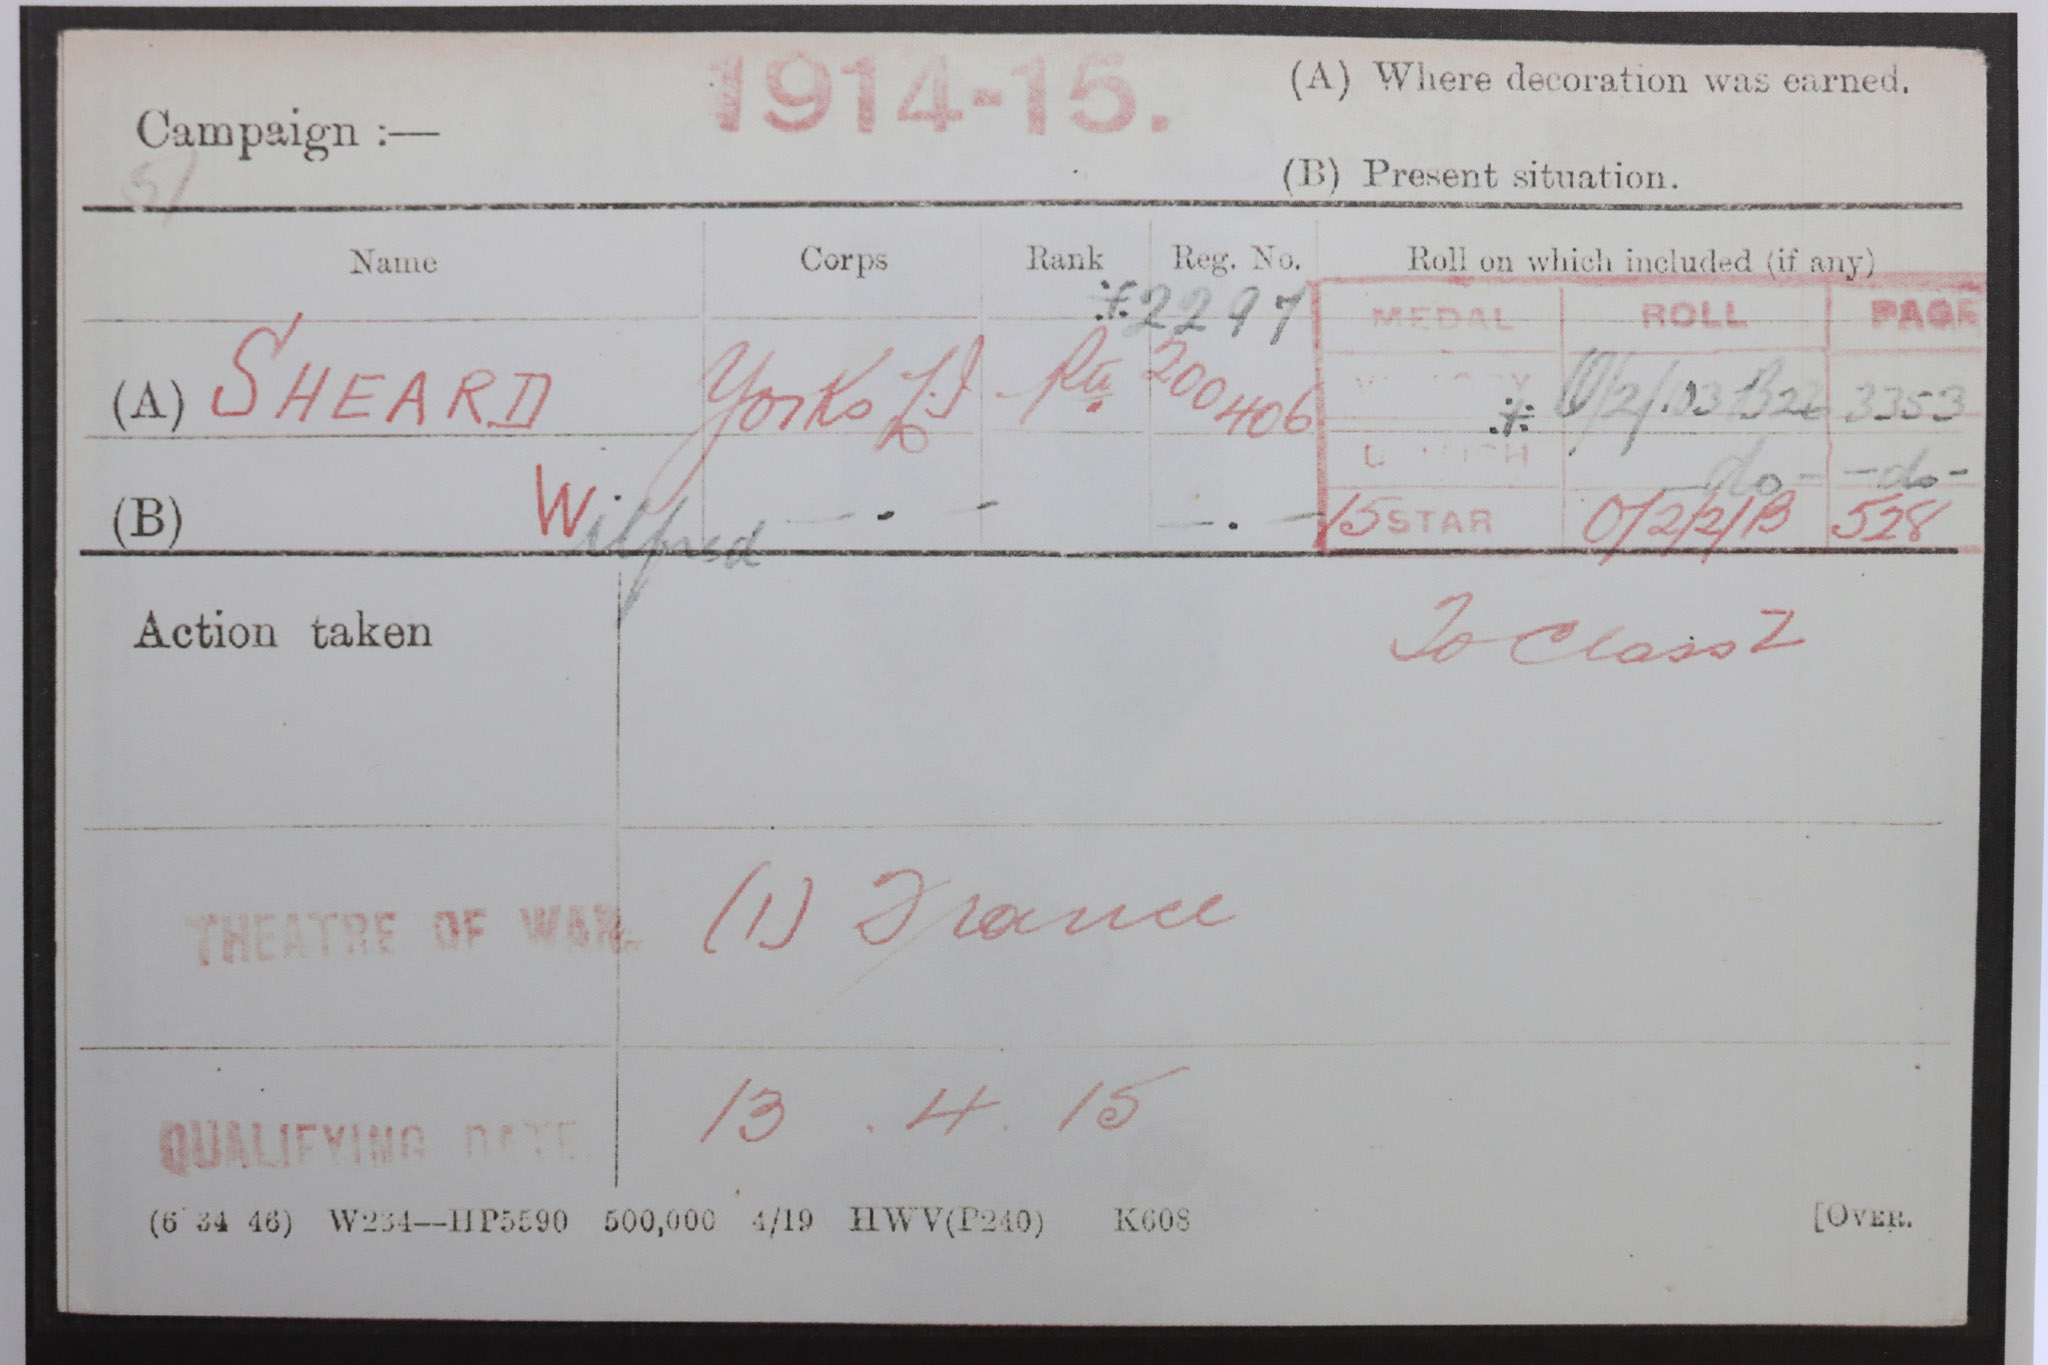 1914-15.
(A) Where decoration was earned.
Campaign :—
(B) Present situation.
Name Corps Rank Reg. No. Roll on which included (if any)
2297
MEDAL ROLL PAGE
(A) SHEARD Yorks L.I. Pte 200406
VICTORY 3353
BRITISH do - -do-
(B) Wilfred — . — — . — 15 STAR O/2/2/B 528
Action taken To Class Z
THEATRE OF WAR. (1) France
QUALIFYING DATE. 13 . 4 . 15
(6 34 46) W234—HP5590 500,000 4/19 HWV(P240) K608 [OVER.